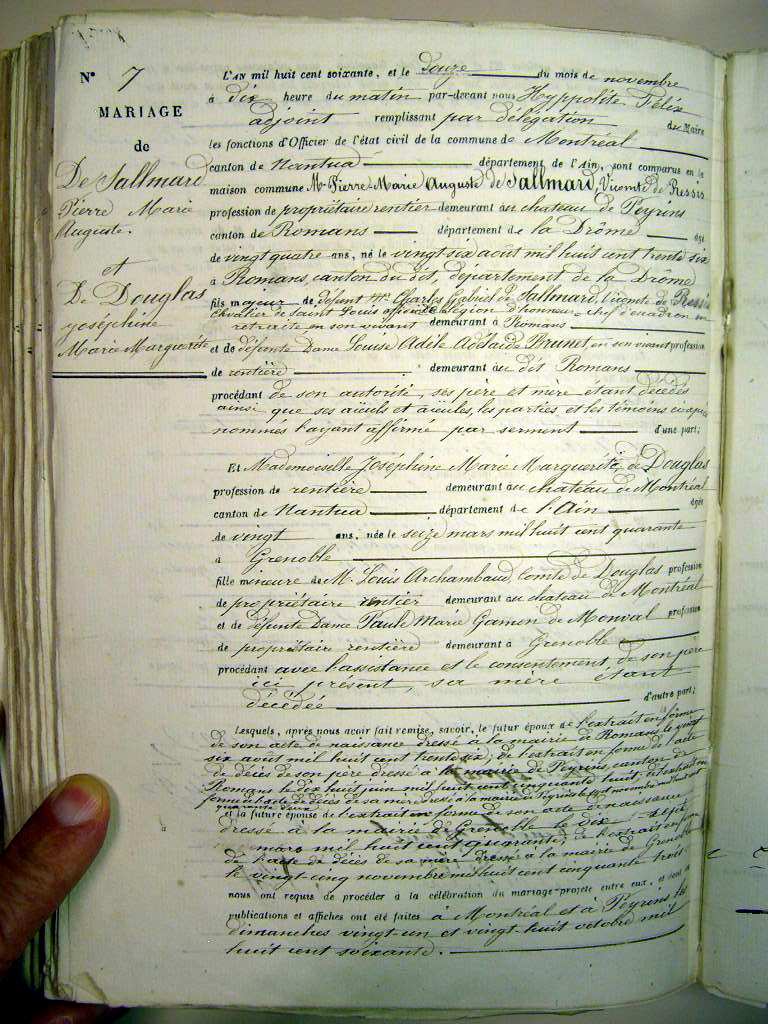 N° 7
MARIAGE
de
De Sallmard
Pierre Marie
Auguste.
et
De Douglas
Joséphine
Marie Marguerite
L'AN mil huit cent soixante, et le douze du mois de novembre
à dix heure du matin par-devant nous Hyppolite Félix
adjoint remplissant par délégation du Maire
les fonctions d'Officier de l'état civil de la commune de Montréal
canton de Nantua département de l'Ain, sont comparus en la
maison commune Mr Pierre Marie Auguste de Sallmard, Vicomte de Ressis
profession de propriétaire rentier demeurant au chateau de Peyrins
canton de Romans département de la Drôme âgé
de vingt quatre ans, né le vingt-six août mil huit cent trente six
à Romans, canton du dit, département de la Drôme
fils majeur de défunt Mr Charles Gabriel de Sallmard, Vicomte de Ressis
chevalier de Saint Louis officier de la légion d'honneur chef d'escadron en
retraite en son vivant demeurant à Romans
et de défunte Dame Louise Adèle Adélaïde Brunet en son vivant profession
de rentière demeurant au dit Romans
procédant de son autorité, ses père et mère étant décédés
ainsi que ses aïeuls et aïeules, les parties et les témoins
nommés l'ayant affirmé par serment d'une part;
Et Mademoiselle Joséphine Marie Marguerite de Douglas
profession de rentière demeurant au chateau de Montréal
canton de Nantua département de l'Ain âgée
de vingt ans, née le seize mars mil huit cent quarante
à Grenoble
fille mineure de Mr Louis Archambaud, Comte de Douglas profession
de propriétaire rentier demeurant au chateau de Montréal
et de défunte Dame Paule Marie Gamon de Monval profession
de propriétaire rentière demeurant à Grenoble
procédant avec l'assistance et le consentement de son père
ici présent, sa mère étant
décédée d'autre part;
Lesquels, après nous avoir fait remise, savoir, le futur époux de l'extrait en forme
de son acte de naissance dressé à la mairie de Romans le vingt
six août mil huit cent trente six; de l'extrait en forme de l'acte
de décès de son père dressé à la mairie de Peyrins canton de
Romans le dix huit juin mil huit cent cinquante huit, de l'extrait en
forme de l'acte de décès de sa mère dressé à la mairie de Peyrins le novembre mil huit cent
quarante deux
et la future épouse de l'extrait en forme de son acte de naissance
dressé à la mairie de Grenoble le dix-sept
mars mil huit cent quarante; de l'extrait en forme
de l'acte de décès de sa mère dressé à la mairie de Grenoble
le vingt-cinq novembre mil huit cent cinquante trois
nous ont requis de procéder à la célébration du mariage projeté entre eux, et dont les
publications et affiches ont été faites à Montréal et à Peyrins les
dimanches vingt-un et vingt-huit octobre mil
huit cent soixante.